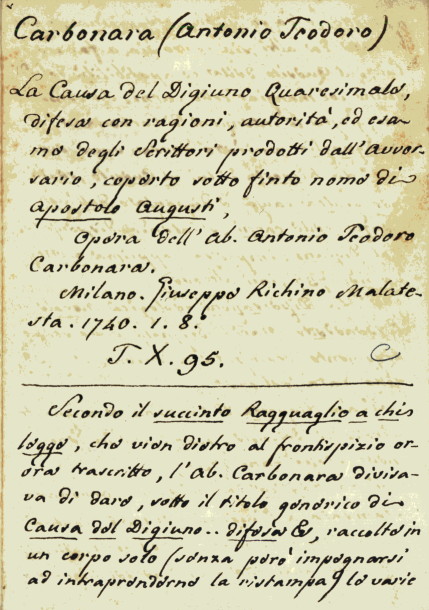 Carbonara (Antonio Teodoro)
La Causa del Digiuno Quaresimale,
difesa con ragioni, autorità, ed esa-
me degli Scrittori prodotti dall'Avver-
sario, coperto sotto finto nome di
Apostolo Augusti,
Opera dell'Ab. Antonio Teodoro
Carbonara.
Milano. Giuseppe Richino Malate-
sta. 1740. 1. 8.º
T. X. 95. C
Secondo il succinto Ragguaglio a chi
legge, che vien dietro al frontispizio or-
ora trascritto, l'Ab. Carbonara divisa-
va di dare, sotto il titolo generico di
Causa del Digiuno.. difesa &, raccolte in
un corpo solo (senza però impegnarsi
ad intraprenderne la ristampa) le varie